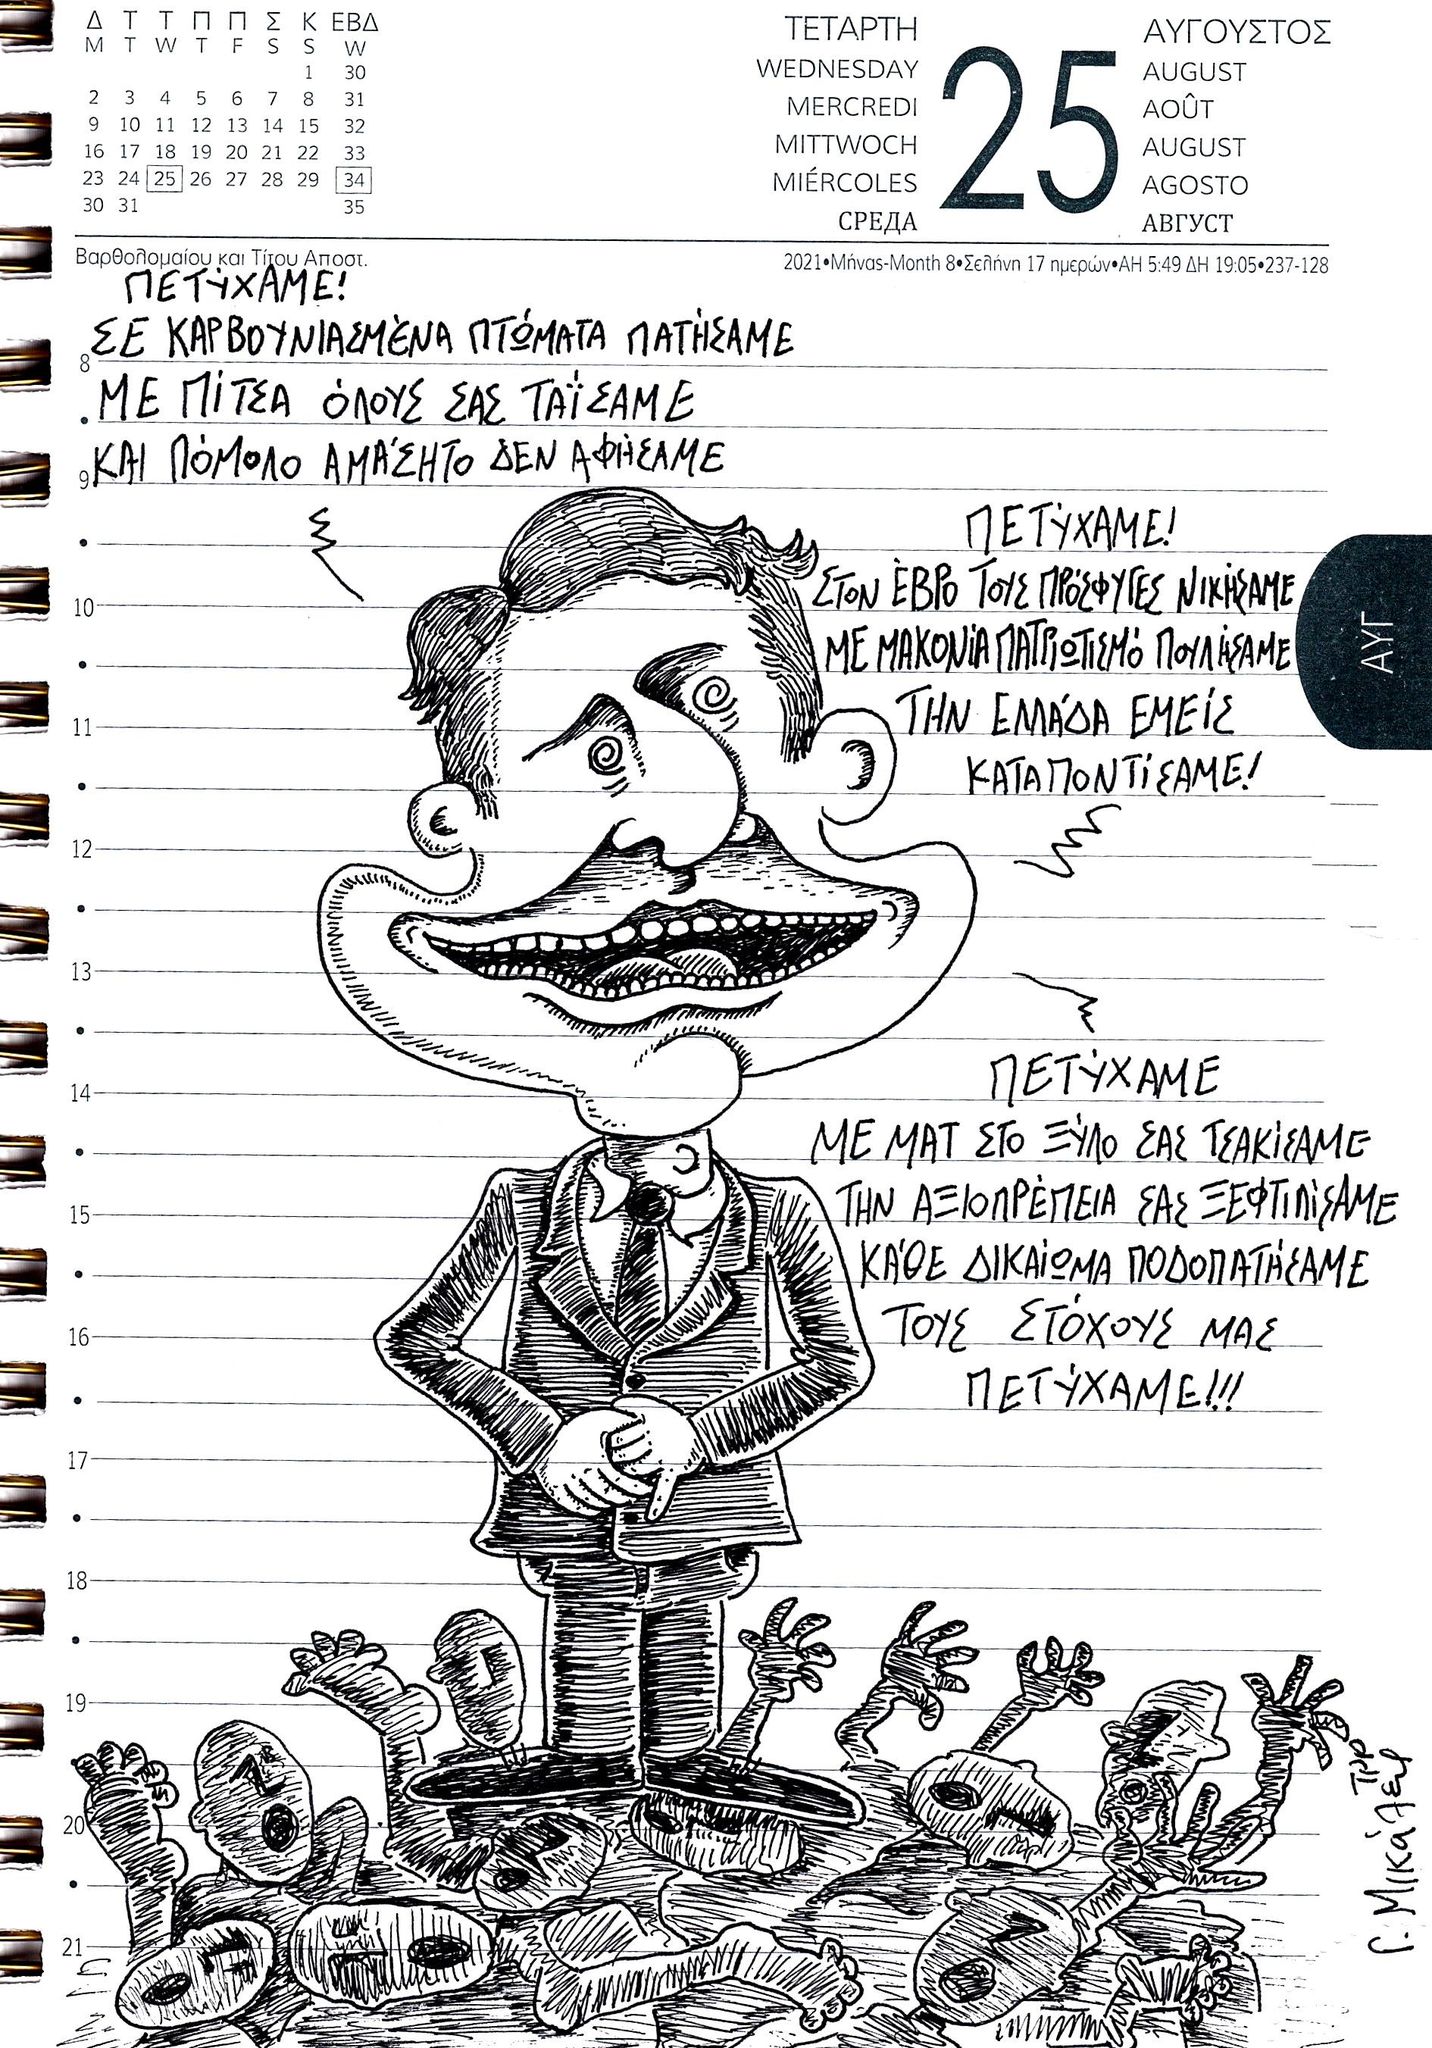 Δ Τ Τ Π Π Σ Κ ΕΒΔ
M T W T F S S W
1 30
2 3 4 5 6 7 8 31
9 10 11 12 13 14 15 32
16 17 18 19 20 21 22 33
23 24 25 26 27 28 29 34
30 31 35
ΤΕΤΑΡΤΗ
WEDNESDAY
MERCREDI
MITTWOCH
MIÉRCOLES
СРЕДА
25
ΑΥΓΟΥΣΤΟΣ
AUGUST
AOÛT
AUGUST
AGOSTO
АВГУСТ
Βαρθολομαίου και Τίτου Αποστ.
2021•Μήνας-Month 8•Σελήνη 17 ημερών•ΑΗ 5:49 ΔΗ 19:05•237-128
ΠΕΤΎΧΑΜΕ!
ΣΕ ΚΑΡΒΟΥΝΙΑΣΜΈΝΑ ΠΤΏΜΑΤΑ ΠΑΤΉΣΑΜΕ
ΜΕ ΠΊΤΣΑ ΌΛΟΥΣ ΣΑΣ ΤΑΪΣΑΜΕ
ΚΑΙ ΠΌΜΟΛΟ ΑΜΆΣΗΤΟ ΔΕΝ ΑΦΉΣΑΜΕ
ΠΕΤΎΧΑΜΕ!
ΣΤΟΝ ΈΒΡΟ ΤΟΥΣ ΠΡΌΣΦΥΓΕΣ ΝΙΚΉΣΑΜΕ
ΜΕ ΜΑΚΟΝΙΑ ΠΑΤΡΙΩΤΙΣΜΌ ΠΟΥΛΉΣΑΜΕ
ΤΗΝ ΕΛΛΆΔΑ ΕΜΕΊΣ
ΚΑΤΑΠΟΝΤΊΣΑΜΕ!
ΑΥΓ
ΠΕΤΎΧΑΜΕ
ΜΕ ΜΑΤ ΣΤΟ ΞΎΛΟ ΣΑΣ ΤΣΑΚΊΣΑΜΕ
ΤΗΝ ΑΞΙΟΠΡΈΠΕΙΑ ΣΑΣ ΞΕΦΤΙΛΊΣΑΜΕ
ΚΆΘΕ ΔΙΚΑΊΩΜΑ ΠΟΔΟΠΑΤΉΣΑΜΕ
ΤΟΥΣ ΣΤΌΧΟΥΣ ΜΑΣ
ΠΕΤΎΧΑΜΕ!!!
8
9
10
11
12
13
14
15
16
17
18
19
20
21
Γ. Μικάλεφ